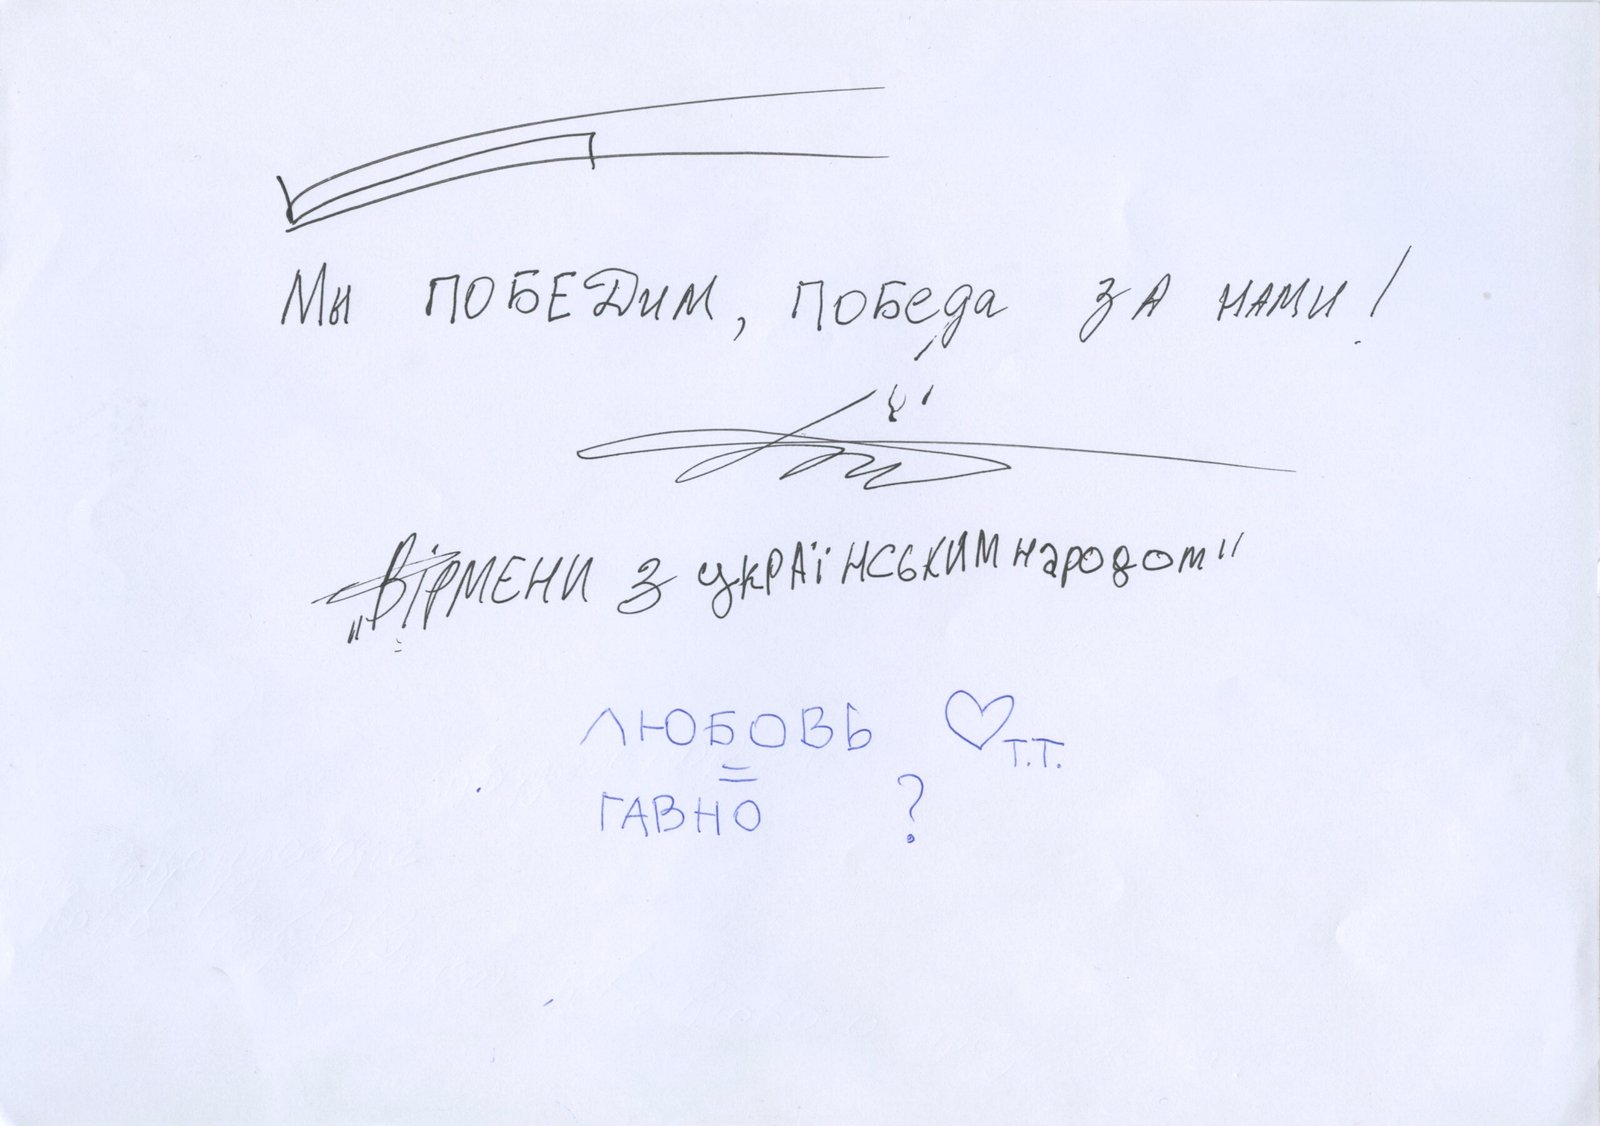 Мы ПОБЕДИМ, ПОбеда ЗА НАМИ!
„ВІРМЕНИ З УКРАЇНСЬКИМ народом"
ЛЮБОВЬ ♡ Т.Т.
=
ГАВНО ?